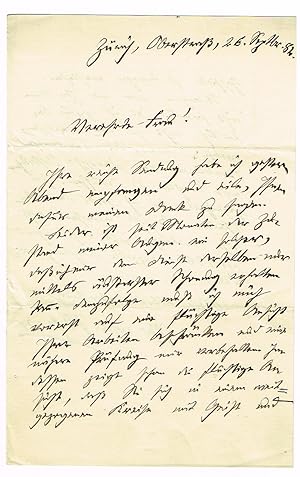 Zürich, Oberstraß, 26. Septbr. 82.
Verehrte Frau!
Ihre werthe Sendung habe ich gestern
Abend empfangen und eile, Ihnen
dafür meinen Dank zu sagen.
Leider ist seit Monaten der Zu-
stand meiner Augen ein solcher,
daß ich mir den Dienst derselben nur
mittels äußerster Schonung erhalten
kann. Demzufolge muß ich mich
vorerst auf eine flüchtige Ansicht
Ihrer Arbeiten beschränken und eine
nähere Prüfung mir vorbehalten. In-
dessen zeigt schon die flüchtige An-
sicht, daß Sie sich in einem weit-
gezogenen Kreise mit Geist und